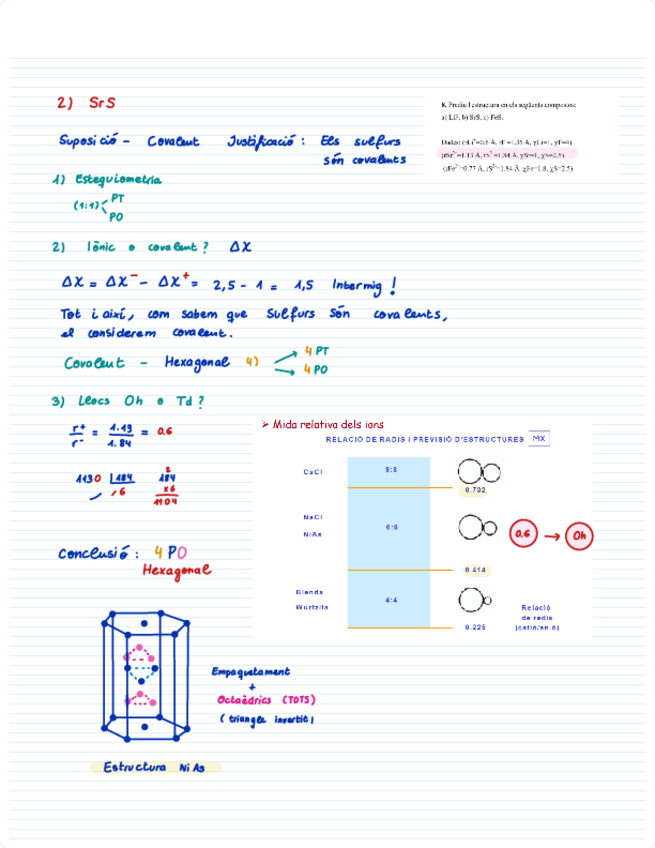 2) SrS
8. Prediu l'estructura en els següents compostos:
a) LiF, b) SrS, c) FeS.
Dades: (rLi⁺=0.6 Å, rF⁻=1.36 Å, χLi=1, χF=4)
(rSr²⁺=1.13 Å, rS²⁻=1.84 Å, χSr=1, χS=2.5)
(rFe²⁺=0.77 Å, rS²⁻=1.84 Å, χFe=1.8, χS=2.5)
Suposició - Covalent Justificació: Els sulfurs
són covalents
1) Estequiometria
(1:1) PT
PO
2) Iònic o covalent? ΔX
ΔX = ΔX⁻ - ΔX⁺ = 2,5 - 1 = 1,5 Intermig!
Tot i així, com sabem que Sulfurs Són covalents,
el considerem covalent.
Covalent - Hexagonal 4) 4 PT
4 PO
3) Llocs Oh o Td?
r⁺/r⁻ = 1.13/1.84 = 0.6
➢ Mida relativa dels ions
RELACIÓ DE RADIS I PREVISIÓ D'ESTRUCTURES MX
CsCl 8:8
0.732
1130 184
,6
2
184
x6
1104
NaCl
NiAs
6:6
0.6 → Oh
0.414
Conclusió: 4 PO
Hexagonal
Blenda
Wurtzita
4:4
0.225
Relació
de radis
(catió/anió)
Empaquetament
+
Octaèdrics (TOTS)
(triangle invertit)
Estructura NiAs